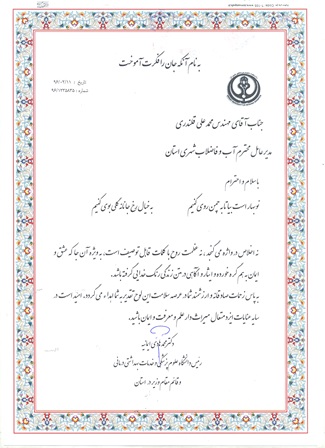 به نام آنکه جان را فکرت آموخت
تاریخ : ۹۶/۰۲/۱۱
شماره : ۹۶/۱۲۳۵۸۲۵
جناب آقای مهندس محمد علی قلندری
مدیر عامل محترم آب و فاضلاب شهری استان
با سلام و احترام
نو بهار است بیا تا به چمن روی کنیم به خیال رخ جانانه گلی بوی کنیم
نه اخلاص در واژه می گنجد، نه عظمت روح با کلمات قابل توصیف است، به ویژه آن جا که عشق و
ایمان به هم گره خورده و ایثار و آگاهی در متن زندگی رنگ خدایی گرفته باشد.
به پاس زحمات صادقانه و ارزشمند شما در عرصه سلامت این لوح تقدیر به شما اهداء می گردد. امید است در
سایه عنایات ایزد متعال همیشه میراث دار علم و معرفت و ایمان باشید.
دکتر محمد هادی ایمانیه
رئیس دانشگاه علوم پزشکی و خدمات بهداشتی درمانی
و قائم مقام وزیر در استان